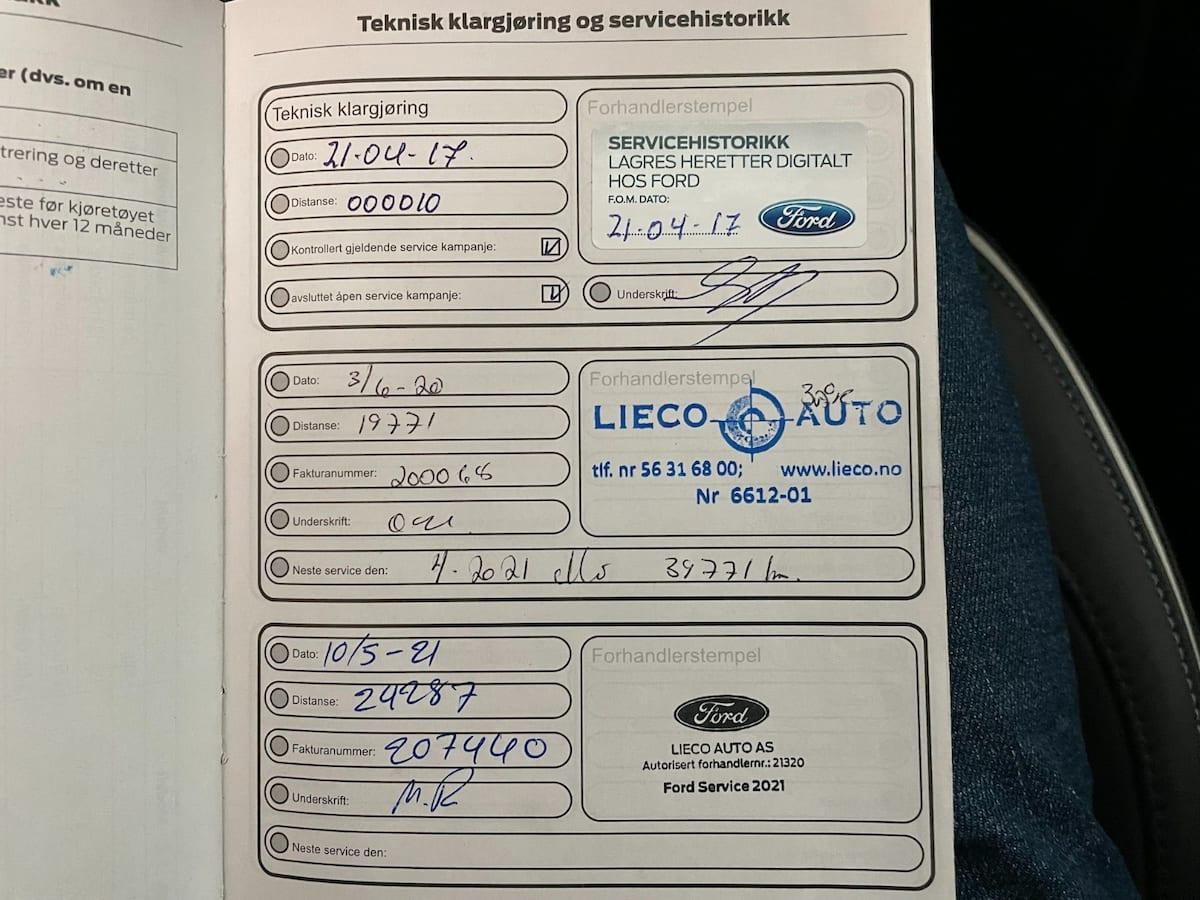 er (dvs. om en
trering og deretter
este før kjøretøyet
nst hver 12 måneder
Teknisk klargjøring og servicehistorikk
Teknisk klargjøring
Dato: 21-04-17.
Distanse: 000010
Kontrollert gjeldende service kampanje:
avsluttet åpen service kampanje:
Forhandlerstempel
SERVICEHISTORIKK
LAGRES HERETTER DIGITALT
HOS FORD
F.O.M. DATO:
21-04-17 Ford
Underskrift:
Dato: 3/6-20
Distanse: 19771
Fakturanummer: 200068
Underskrift:
Forhandlerstempel
LIECO AUTO
tlf. nr 56 31 68 00; www.lieco.no
Nr 6612-01
Neste service den: 4.2021 39771 km.
Dato: 10/5-21
Distanse: 24287
Fakturanummer: 207440
Underskrift: M.R
Forhandlerstempel
Ford
LIECO AUTO AS
Autorisert forhandlernr.: 21320
Ford Service 2021
Neste service den: